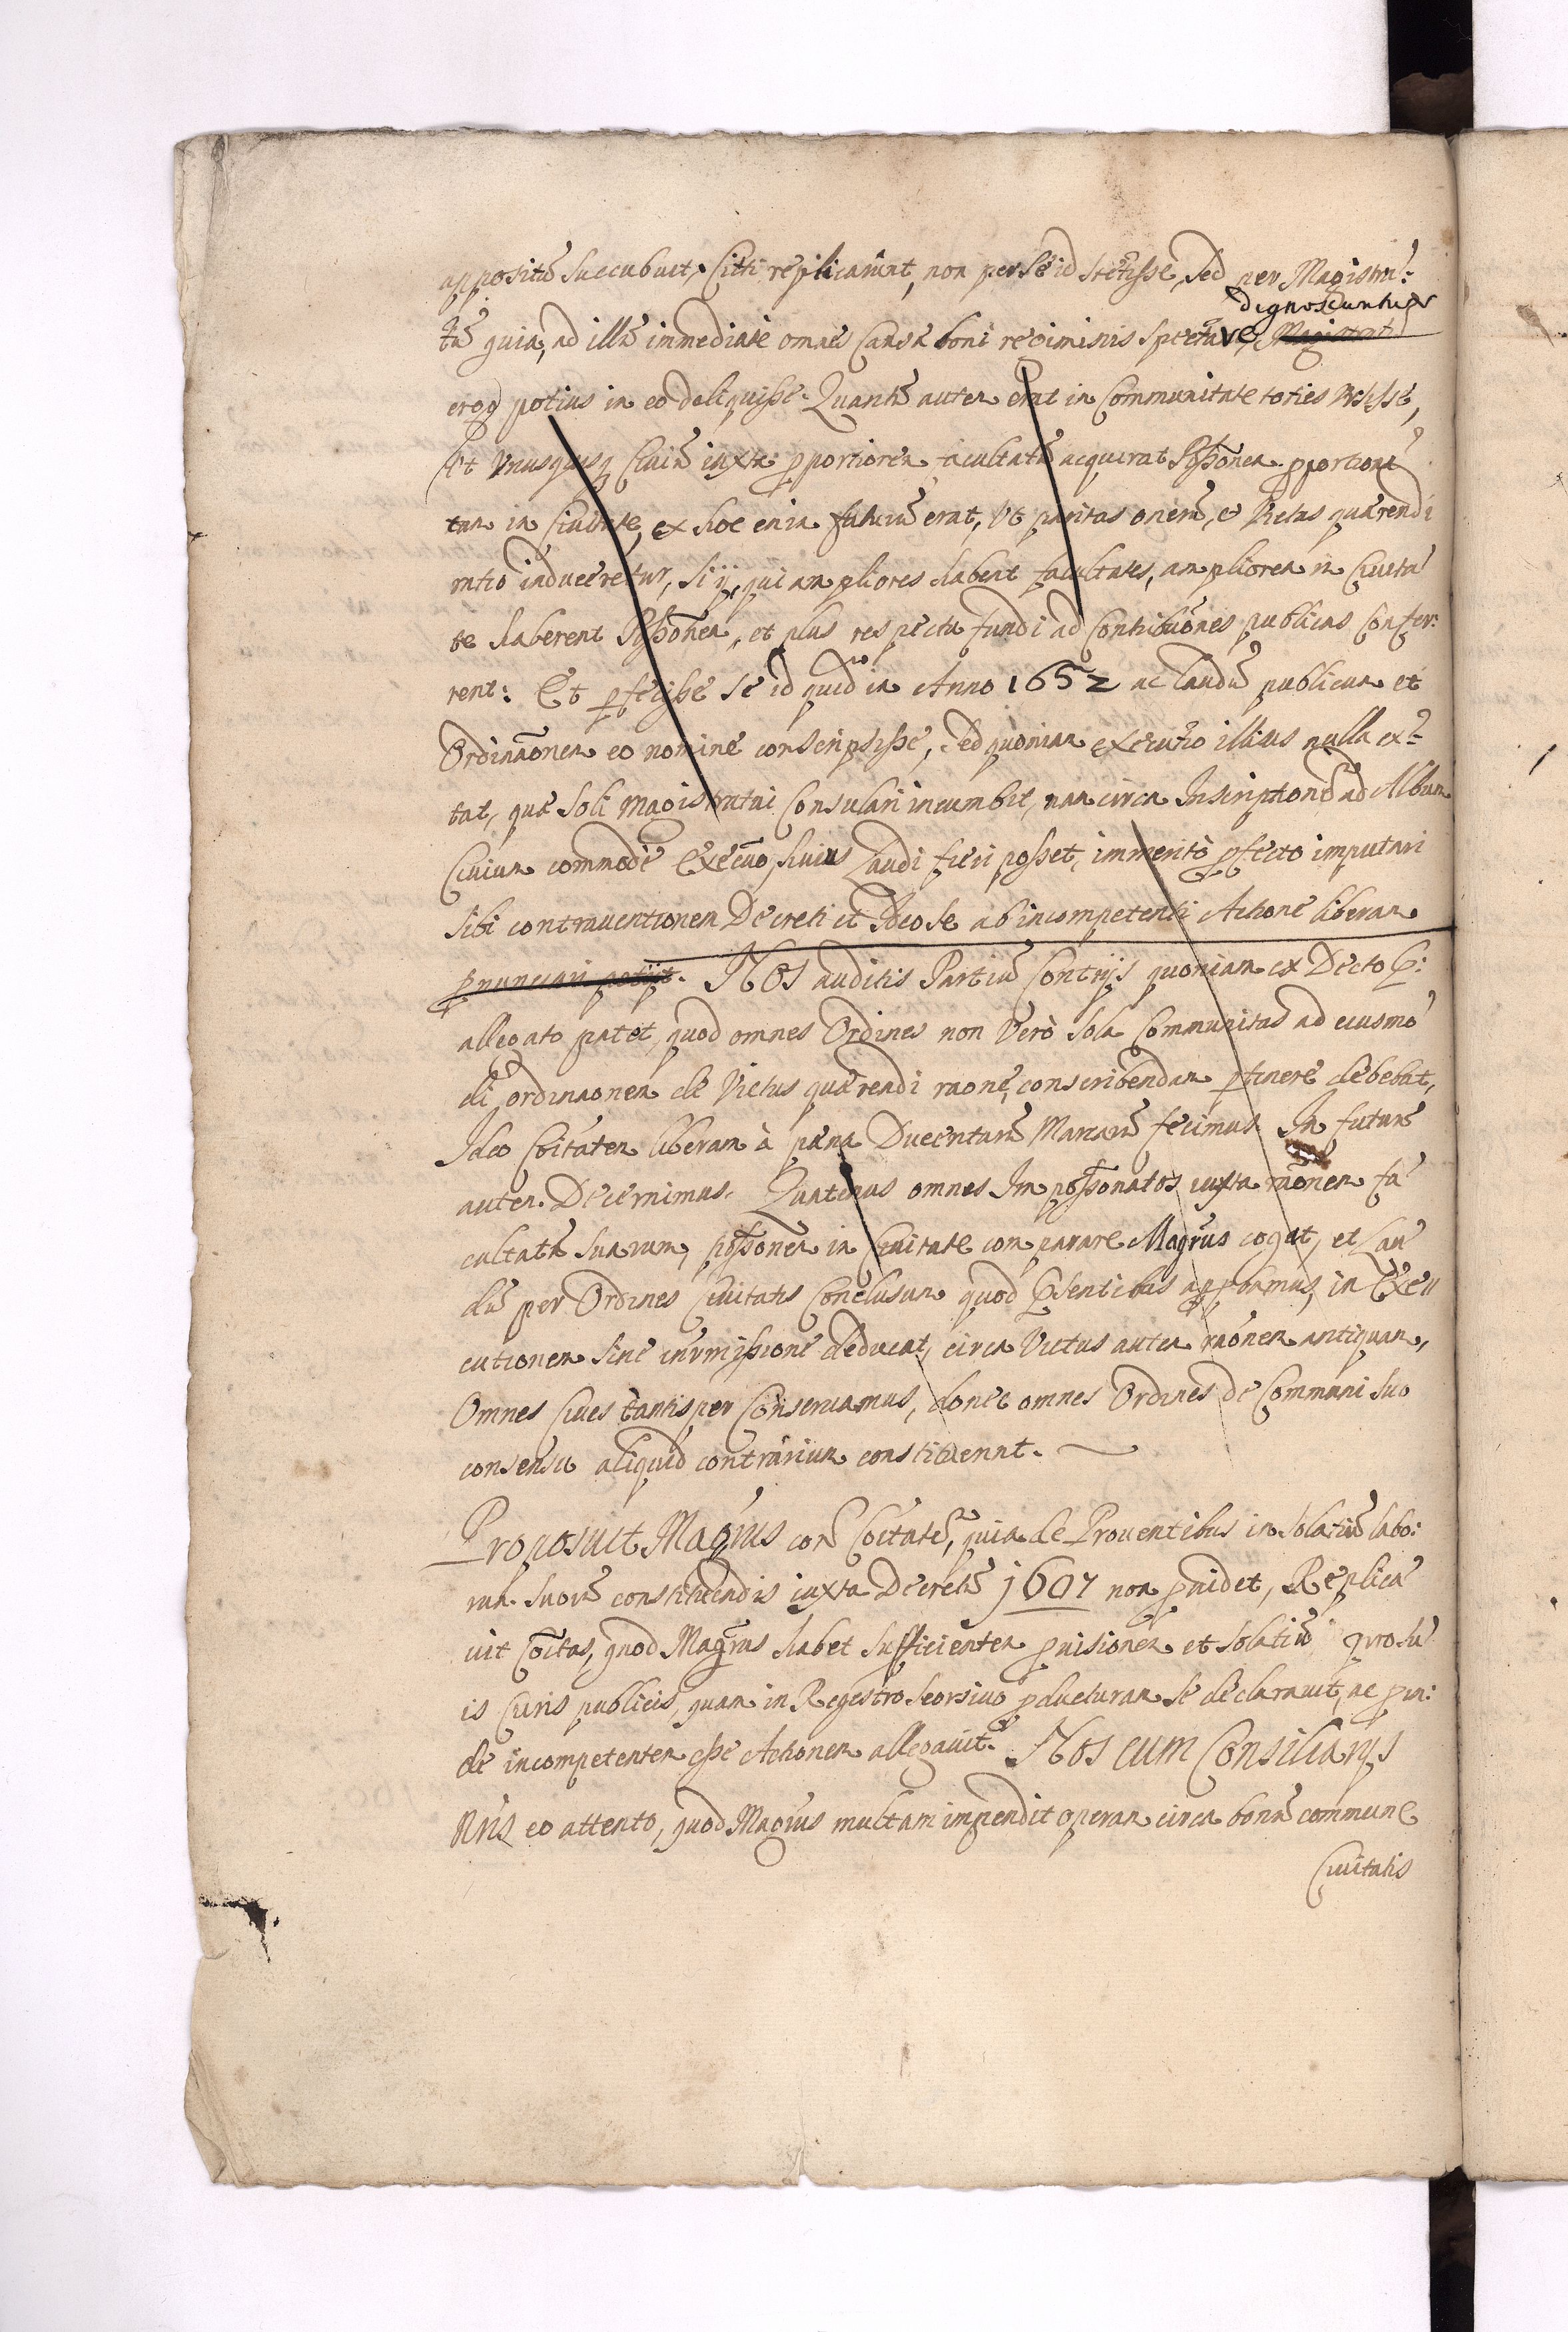 appositū succubuit, Citti replicarunt, non per se id stetisse, sed per Magistra:
dignoscuntur
tū quia, ad illū immediate omnes causæ boni regiminis spectare, Magistrat
erog potius in eo deliquisse. Quantū autem erat in Communitate toties
Ut vnusquisq Ciuiū iuxta pportionem facultatū acquirat Possonem pportiona
tam in Ciuitate, ex hoc enim futurū erat, Ut paritas onerū, et Victus quærendi
ratio induceretur, si ij, qui ampliores habent facultates, ampliorem in Ciuita
te haberent Possonem, et plus respectu fundi ad Contribuones publicas confer:
rent: Et pfecisse se id quid in Anno 1652 ac Laudū publicum et
Ordinaonem eo nomine conscripsisse, sed quoniam executio illius nulla ex:
tat, quæ soli Magistratui Consulari incumbit, nam circa Inscriptionē ad Album
Ciuium commode Execuo huius Laudi fieri posset, immerito pfecto imputari
sibi contrauentionem Decreti et Ideo se ab incompetenti Actione liberam
pnunciari petijt. NOS auditis Partiū Contrijs quoniam ex Decto P:
allegato patet, quod omnes Ordines non Verò sola Communitas ad eiusmo
di ordinaonem de Victus quærendi raone, conscribendam ptinere debebat,
Ideo Coitatem liberam à pæna Ducentarū Marcarū fecimus. In futurū
autem Decernimus. Quatenus omnes Impossonatos iuxta raonem fa
cultatū suarum, possonem in Ciuitate comparare Magrus cogat, et Lau
dū per Ordines Ciuitatis Conclusum quod Psentibus approbamus, in Exe"
cutionem sine inrmissione deducat, circa Victus autem raonem antiquam,
Omnes Ciues tantisper Conseruamus, donec omnes Ordines de Communi suo
consensu aliquid contrarium constituent.
Proposuit Magrus con Coitatē, quia de Prouentibus in solatiū labo:
rum suorū constituendis iuxta Decretū 1607 non puidet, Replica
uit Coitas, quod Magrus habet sufficientem puisionem et solatiū pro su
is Curis publicis, quam in Regestro seorsiuo pducturam se declarauit, ac pin:
de incompetentem esse Actionem allegauit. Nos cum Consiliarijs
Nris eo attento, quod Magrus multam impendit operam circa bonū commune
Ciuitatis